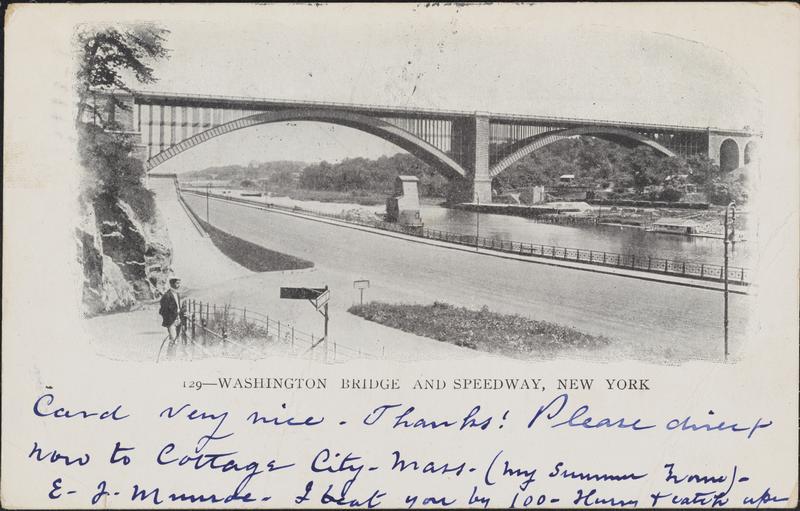 129—WASHINGTON BRIDGE AND SPEEDWAY, NEW YORK
Card very nice - Thanks! Please direct
now to Cottage City - Mass - (my Summer home) -
E - J - Munroe - I beat you by 100 - Hurry & catch up -